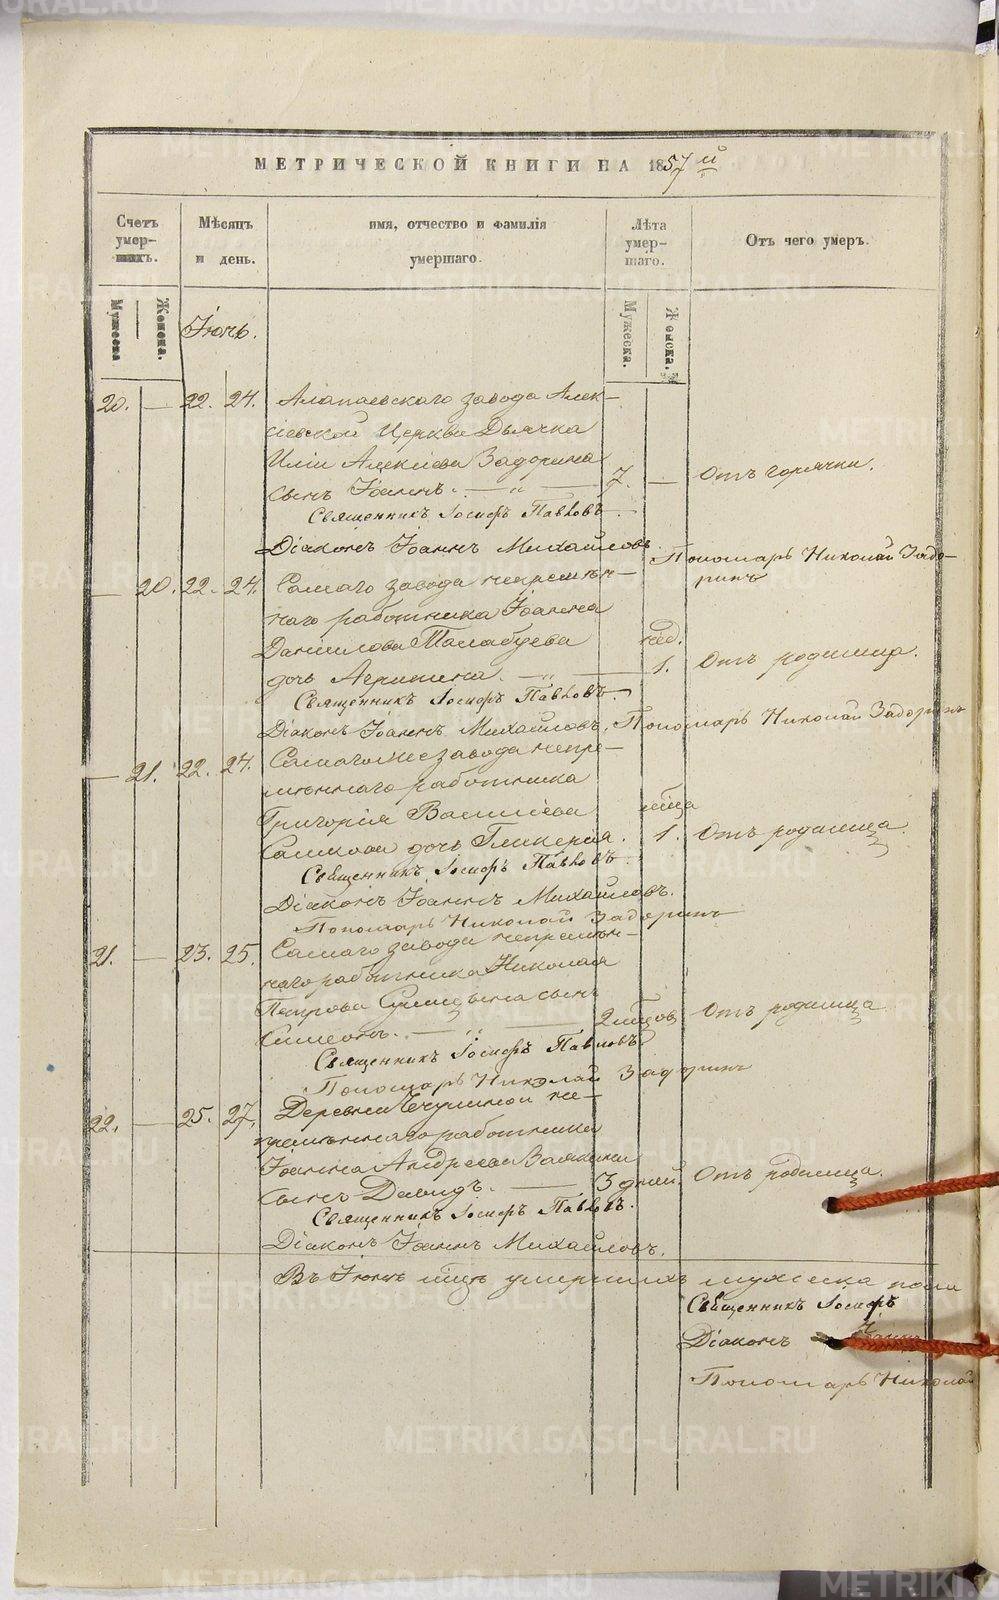 МЕТРИЧЕСКОЙ КНИГИ НА 1857й
Счетъ умер- шихъ.
Мѣсяцъ и день.
имя, отчество и фамилія умершаго.
Лѣта умер- шаго.
Отъ чего умеръ.
Мужеска
Женска.
Іюнь.
Мужеска.
Женска.
20. — 22. 24. Алапаевскаго завода Алек-
сіевской Церкви Дьячка
Иліи Алексіева Задорина
сынъ Іоаннъ. — „ — 7. — Отъ горячки.
Священникъ Іосифъ Павловъ.
Діаконъ Іоаннъ Михайловъ. Пономарь Николай Задо-
ринъ
— 20. 22. 24. Самаго завода непремѣн-
наго работника Іоанна
Даніилова
нед.
дочь Агрипина. — „ — 1. Отъ родимца.
Священникъ Іосифъ Павловъ.
Діаконъ Іоаннъ Михайловъ. Пономарь Николай Задоринъ
— 21. 22. 24. Самаго же завода непре-
мѣннаго работника
Григорія Василіева мѣсца
дочь Гликерія. 1. Отъ родимца.
Священникъ Іосифъ Павловъ.
Діаконъ Іоаннъ Михайловъ.
Пономарь Николай Задоринъ
21. — 23. 25. Самаго завода непремѣн-
наго работника Николая
Петрова сынъ
Симеонъ. — „ — 2 мѣсцов Отъ родимца
Священникъ Іосифъ Павловъ
Пономарь Николай Задоринъ
22. — 25. 27. Деревни не-
премѣннаго работника
Іоанна Андреева
сынъ Давидъ. — 3 дней. Отъ родимца.
Священникъ Іосифъ Павловъ.
Діаконъ Іоаннъ Михайловъ.
Въ Іюнѣ мѣсцѣ умершихъ мужеска пола
Священникъ Іосифъ
Діаконъ Іоаннъ
Пономарь Николай
METRIKI.GASO-URAL.RU